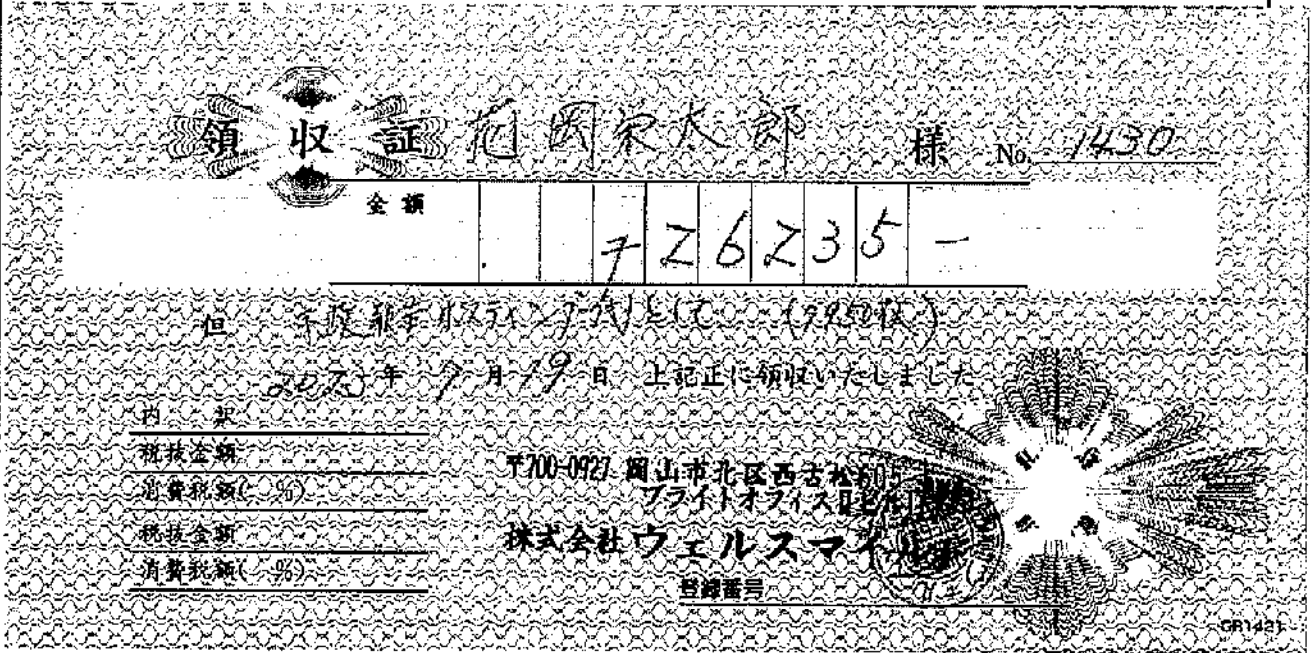 領収証 花岡栄太郎 様 No. 1430
金額 ¥26235-
但 ポスティング代として (7950枚)
2023年 月19日 上記正に領収いたしました
内訳
税抜金額
消費税額( %)
税抜金額
消費税額( %)
〒700-0927 岡山市北区西古松605
ブライトオフィスⅡビル
株式会社ウェルスマイル
登録番号
収入印紙
GR1421